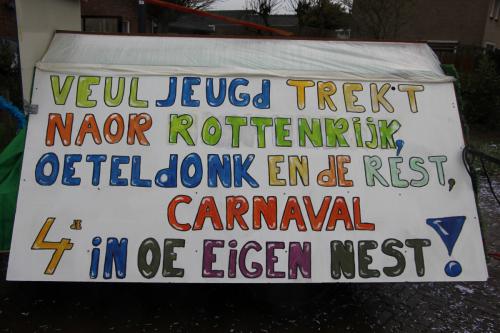 VEUL JEUGd TREKT
NAOR ROTTENRIJK,
OETELdONK EN dE REST,
CARNAVAL
4R iN OE EiGEN NEST!